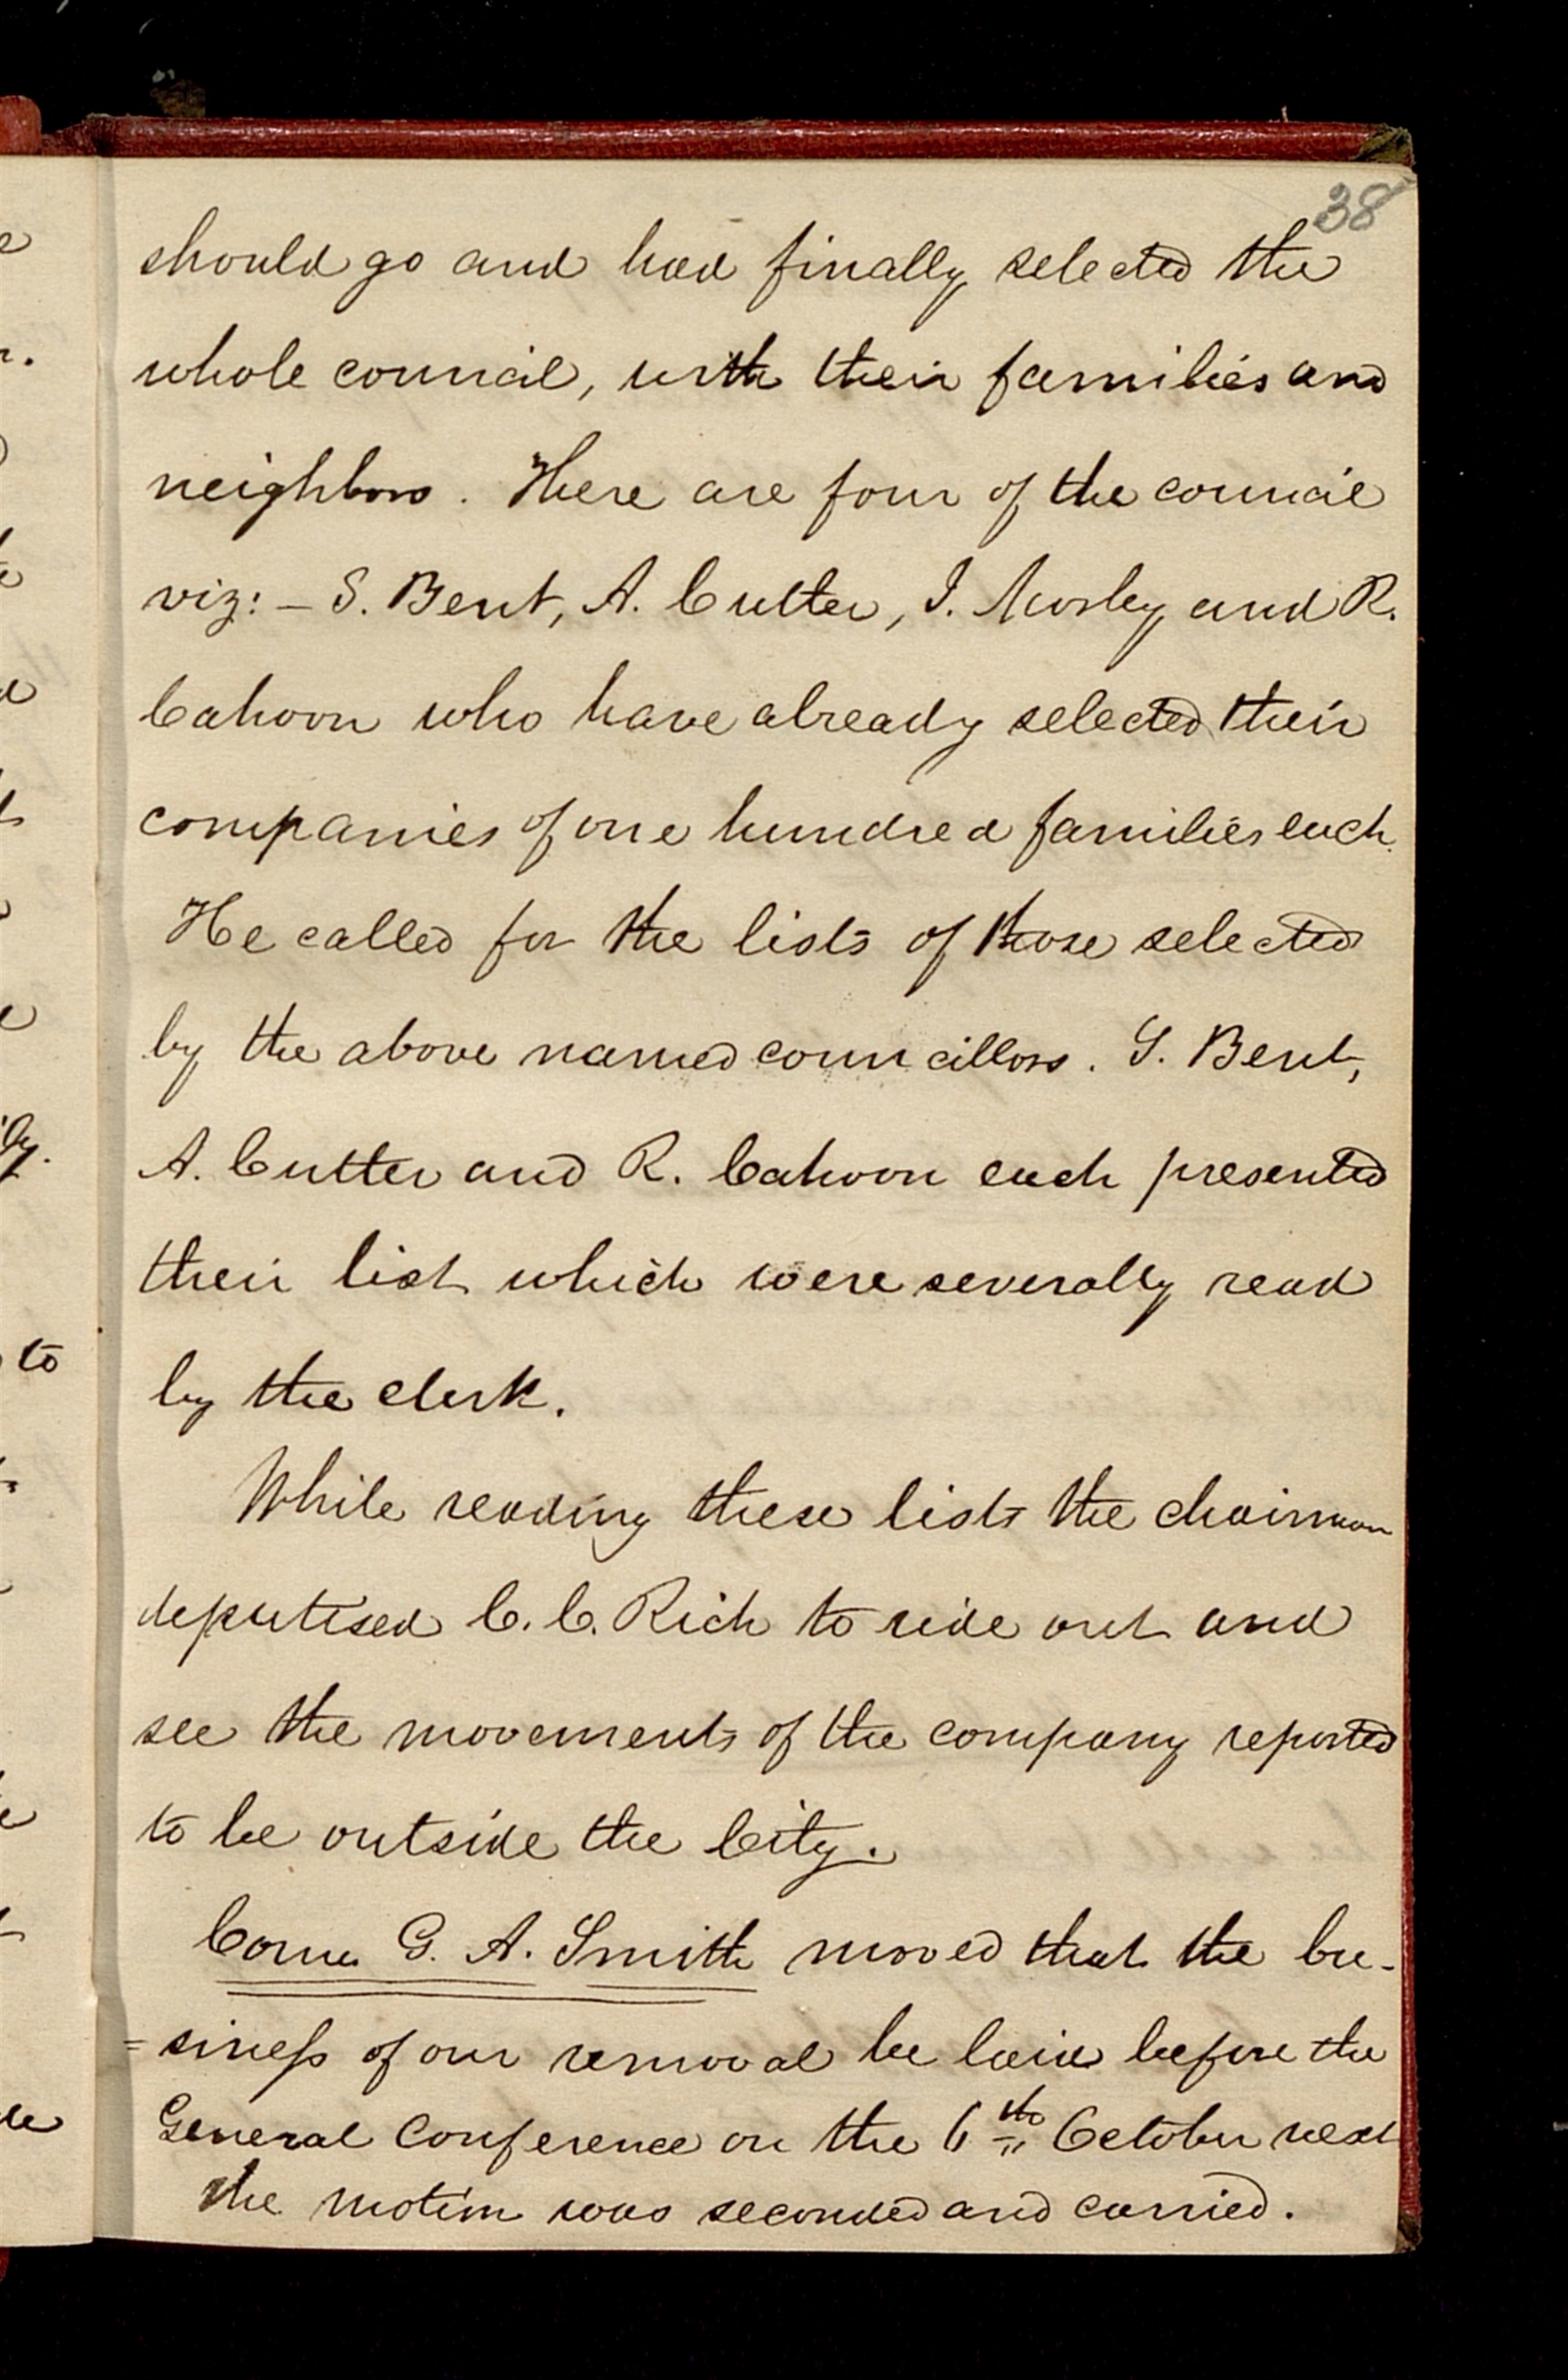 38
should go and had finally selected the
whole council, with their families and
neighbors. There are four of the council
viz: – S. Bent, A. Cutler, I. Morley and R.
Cahoon who have already selected their
companies of one hundred families each.
He called for the lists of those selected
by the above named councillors. S. Bent,
A. Cutler and R. Cahoon each presented
their list which were severally read
by the clerk.
While reading these lists the chairman
deputised C. C. Rich to ride out and
see the movements of the company reported
to be outside the City.
Coun G. A. Smith moved that the bu-
=siness of our removal be laid before the
General Conference on the 6th October next
the motion was seconded and carried.